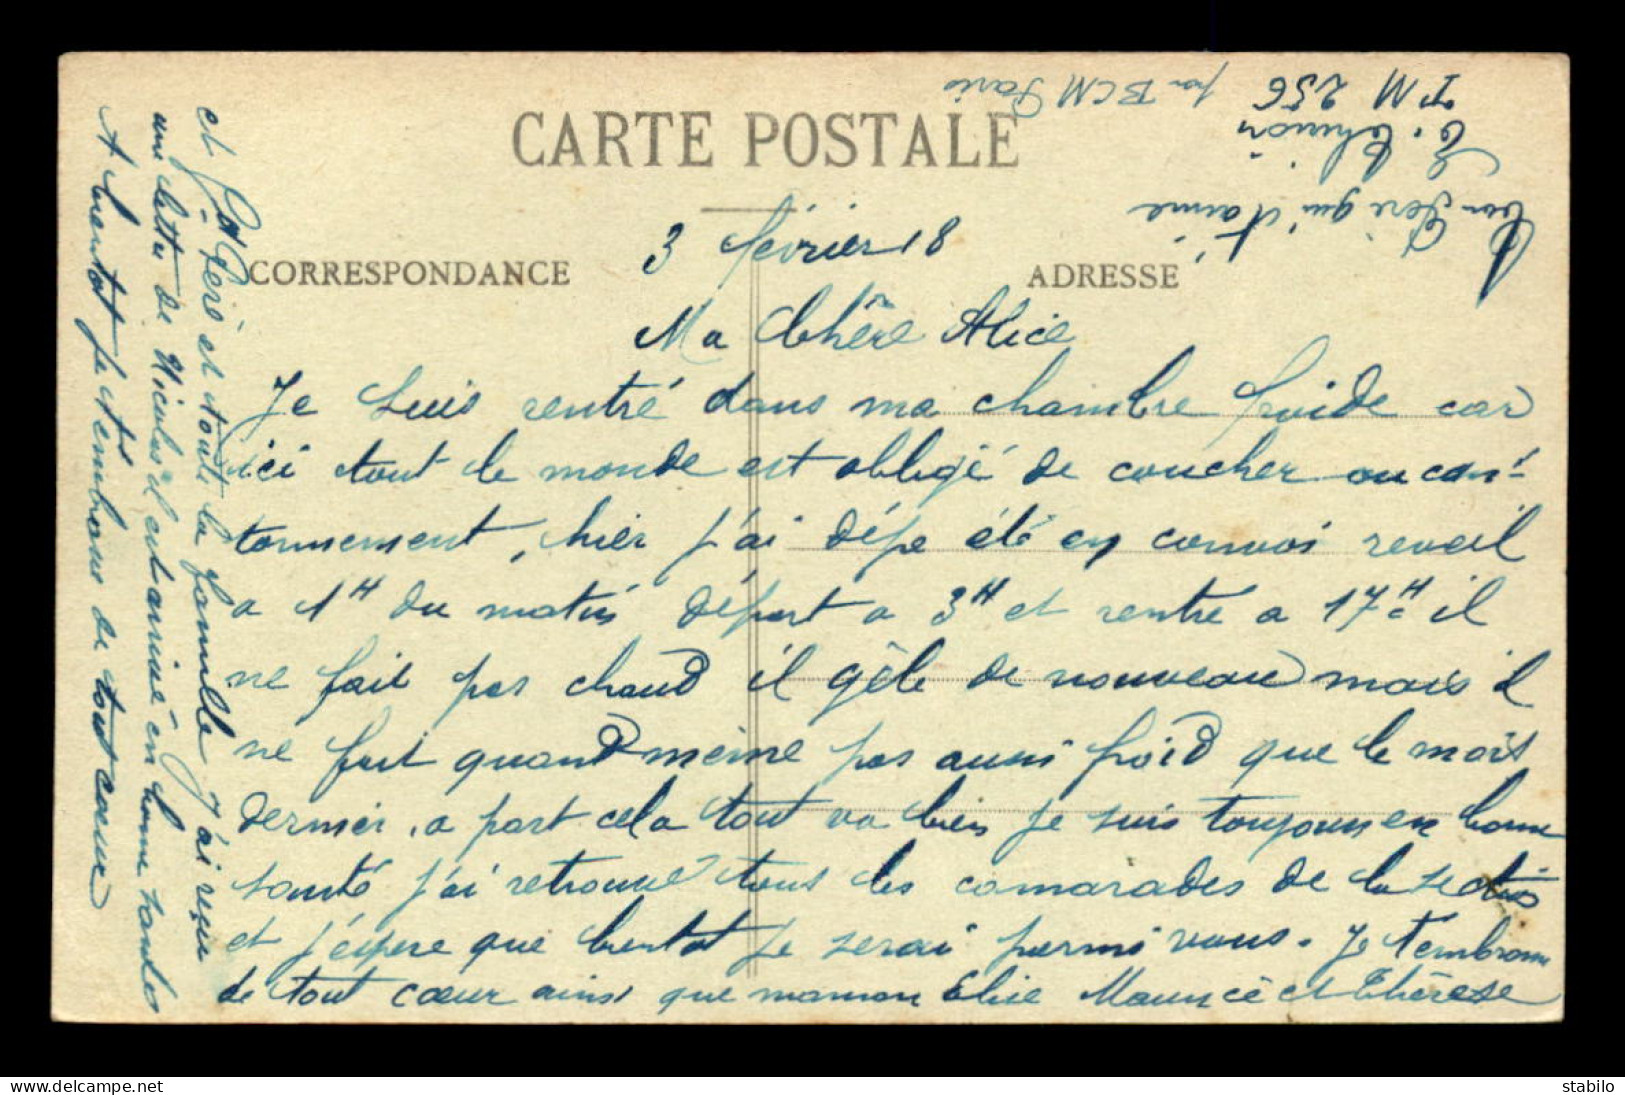 CARTE POSTALE
3 février 18
CORRESPONDANCE
ADRESSE
Ma Chère Alice
Je suis rentré dans ma chambre froide car
ici tout le monde est obligé de coucher au can-
tonnement, hier j'ai dépe été en convoi reveil
a 1H du matin départ a 3H et rentré a 17H il
ne fait pas chaud il gèle de nouveau mais il
ne fait quand même pas aussi froid que le mois
dernier, a part cela tout va bien je suis toujours en bonne
santé j'ai retrouvé tous les camarades de la section
et j'éspere que bientot je serai parmi vous. Je t'embrasse
de tout cœur ainsi que maman Elise Maurice et Thérèse
et Père et toute la famille j'ai reçu
une lettre de Nicolas il est arrivé en bonne santé
A bientot je t'embrasse de tout cœur
Ton Père qui t'aime
E. Thirion
TM 256
par BCM Paris
stabilo